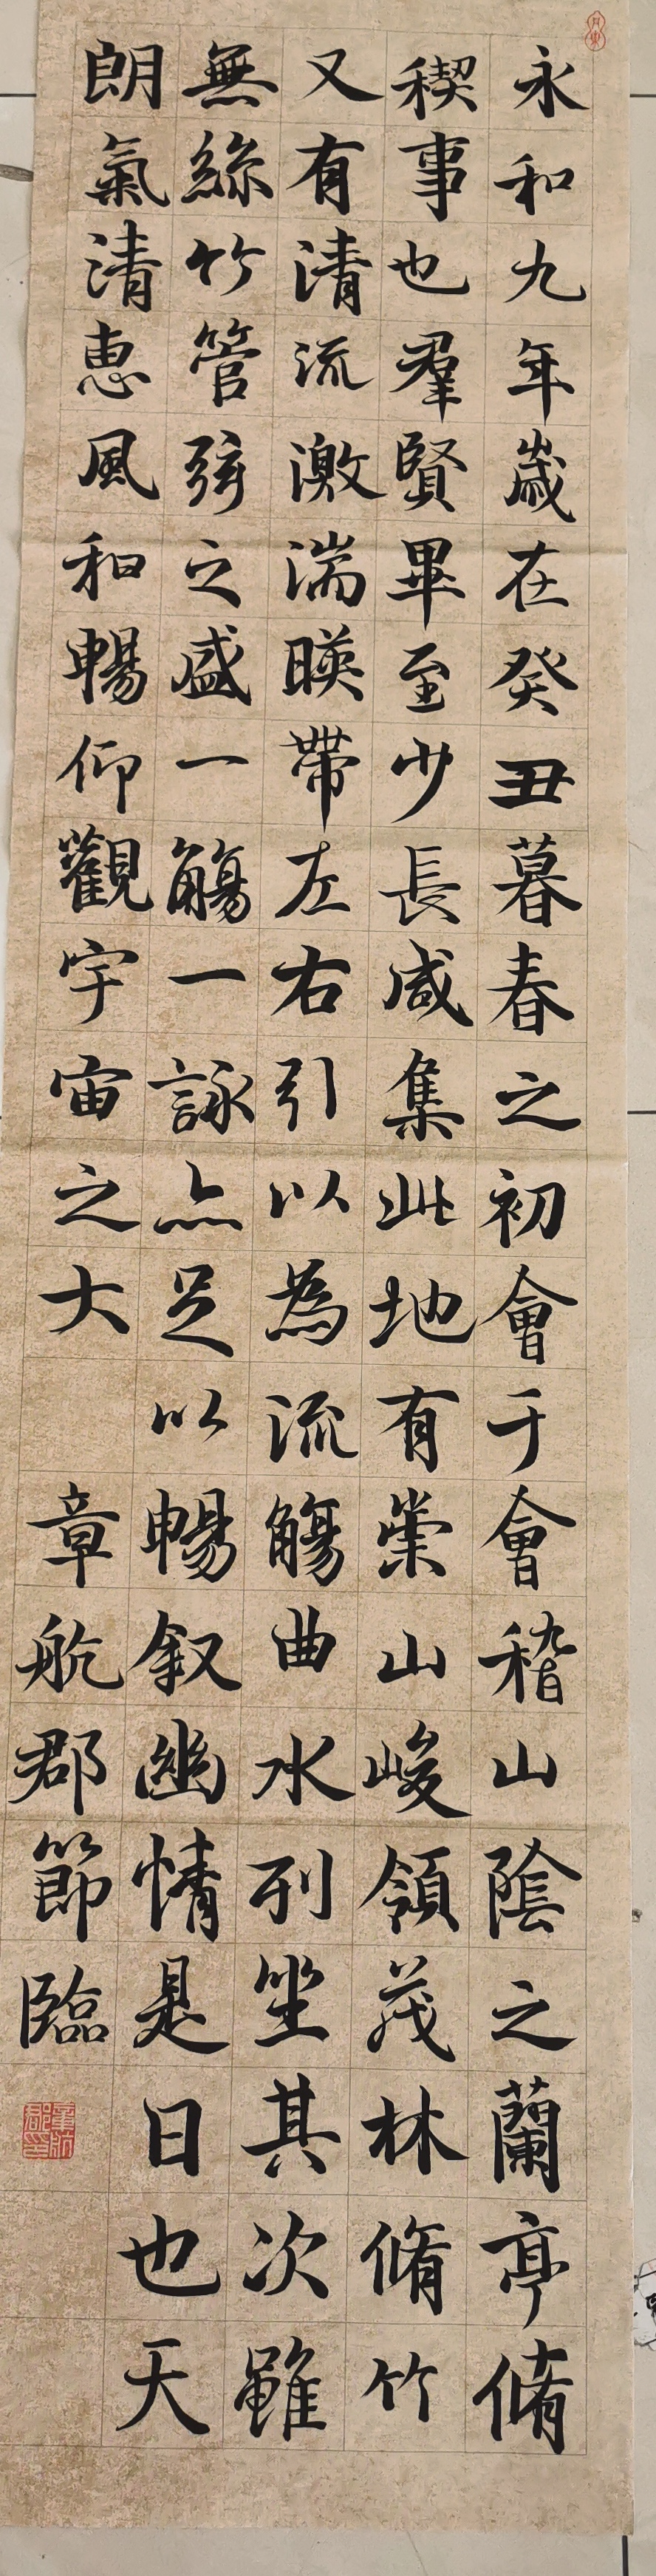 永和九年歲在癸丑暮春之初會于會稽山陰之蘭亭脩
稧事也羣賢畢至少長咸集此地有崇山峻領茂林脩竹
又有清流激湍暎帶左右引以為流觴曲水列坐其次雖
無絲竹管弦之盛一觴一詠亦足以暢叙幽情是日也天
朗氣清惠風和暢仰觀宇宙之大
章航郡節臨
章航郡印